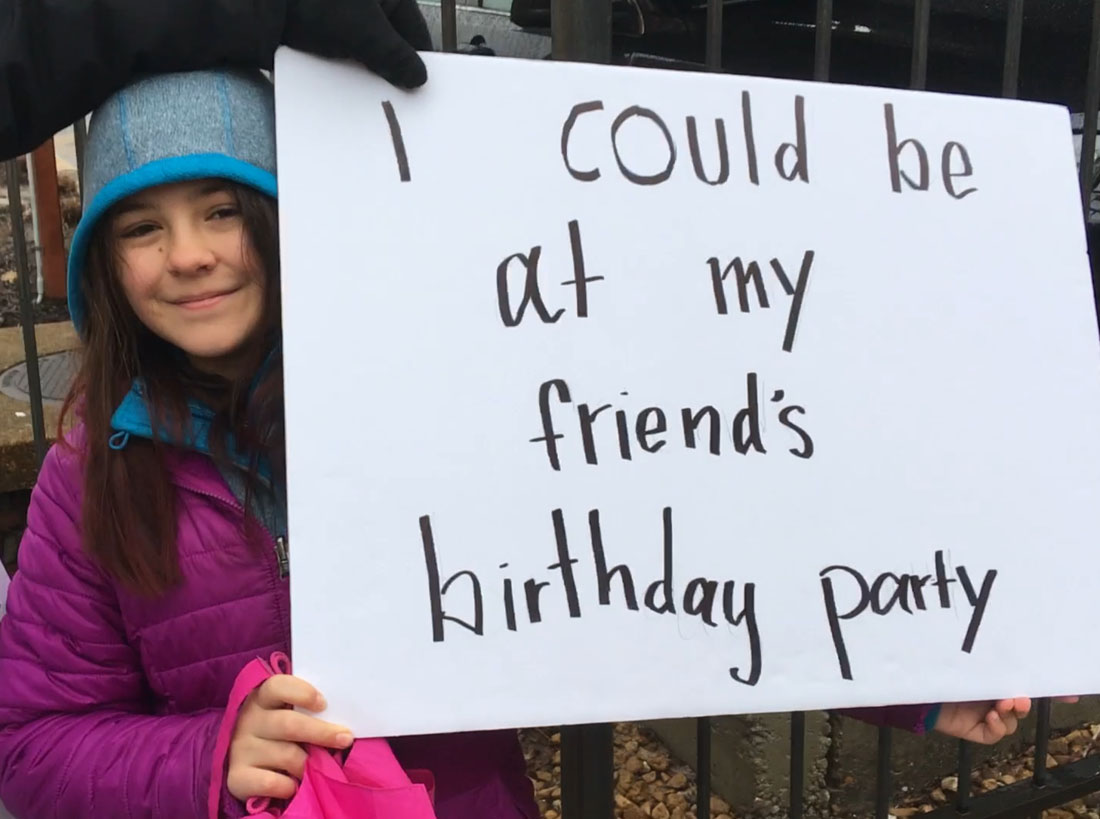 I could be
at my
friend's
birthday party